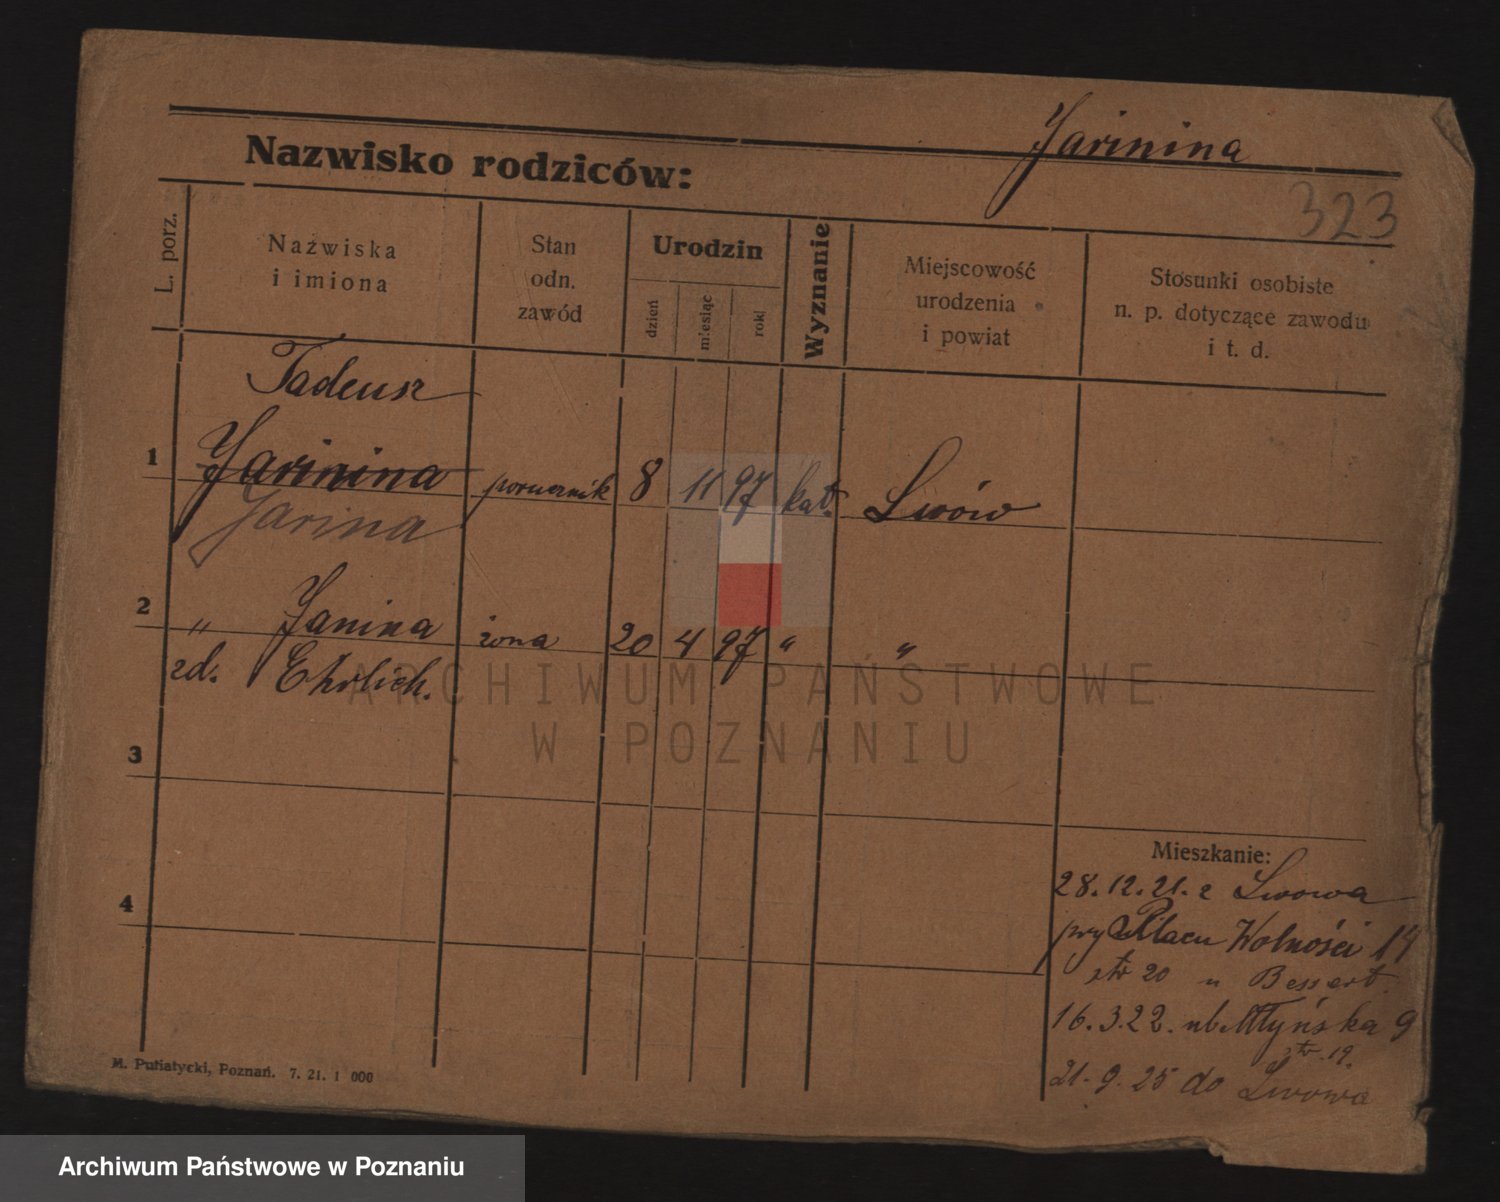 Jarinina
Nazwisko rodziców:
323
L. porz.
Nazwiska
i imiona
Stan
odn.
zawód
Urodzin
dzień
miesiąc
rok
Wyznanie
Miejscowość
urodzenia
i powiat
Stosunki osobiste
n. p. dotyczące zawodu
i t. d.
Tadeusz
1 Jarinina porucznik 8 11 97 kat. Lwów
Jarina
2 " Janina żona 20 4 97 " "
zd. Ehrlich.
ARCHIWUM PAŃSTWOWE
W POZNANIU
3
Mieszkanie:
28.12.21. z Lwowa
4
przy Placu Wolności 14
str 20 u Bessert.
16.3.22. ul. Młyńska 9
str. 19.
21.9.25 do Lwowa
M. Putiatycki, Poznań. 7. 21. 1 000
Archiwum Państwowe w Poznaniu